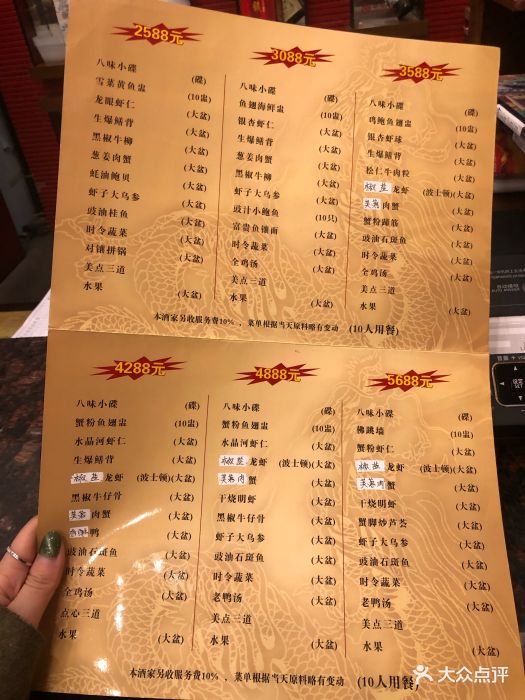 2588元
八味小碟 (碟)
雪菜黄鱼盅 (10盅)
龙眼虾仁 (大盆)
生爆鳝背 (大盆)
黑椒牛柳 (大盆)
葱姜肉蟹 (大盆)
蚝油鲍贝 (大盆)
虾子大乌参 (大盆)
豉油桂鱼 (大盆)
时令蔬菜 (大盆)
对镶拼锅 (大盆)
美点三道
水果 (大盆)
3088元
八味小碟 (碟)
鱼翅海鲜盅 (10盅)
银杏虾仁 (大盆)
生爆鳝背 (大盆)
葱姜肉蟹 (大盆)
黑椒牛柳 (大盆)
虾子大乌参 (大盆)
豉汁小鲍鱼 (10只)
富贵鱼镶面 (大盆)
时令蔬菜 (大盆)
全鸡汤 (大盆)
美点三道
水果 (大盆)
3588元
八味小碟 (碟)
鸡鲍鱼翅盅 (10盅)
银杏虾球 (大盆)
生爆鳝背 (大盆)
松仁牛肉粒 (大盆)
椒盐龙虾 (波士顿)(大盆)
芙蓉肉蟹 (大盆)
蟹粉蹄筋 (大盆)
豉油石斑鱼 (大盆)
时令蔬菜 (大盆)
全鸡汤 (大盆)
美点三道
水果 (大盆)
本酒家另收服务费10%，菜单根据当天原料略有变动 (10人用餐)
4288元
八味小碟 (碟)
蟹粉鱼翅盅 (10盅)
水晶河虾仁 (大盆)
生爆鳝背 (大盆)
椒盐龙虾 (波士顿)(大盆)
黑椒牛仔骨 (大盆)
芙蓉肉蟹 (大盆)
鸭 (大盆)
豉油石斑鱼 (大盆)
时令蔬菜 (大盆)
全鸡汤 (大盆)
点心三道
水果 (大盆)
4888元
八味小碟 (碟)
蟹粉鱼翅盅 (10盅)
水晶河虾仁 (大盆)
椒盐龙虾 (波士顿)(大盆)
芙蓉肉蟹 (大盆)
干烧明虾 (大盆)
黑椒牛仔骨 (大盆)
虾子大乌参 (大盆)
豉油石斑鱼 (大盆)
时令蔬菜 (大盆)
老鸭汤 (大盆)
美点三道
水果 (大盆)
5688元
八味小碟 (碟)
佛跳墙 (10盅)
蟹粉虾仁 (大盆)
椒盐龙虾 (波士顿)(大盆)
芙蓉肉蟹 (大盆)
干烧明虾 (大盆)
蟹脚炒芦荟 (大盆)
虾子大乌参 (大盆)
豉油石斑鱼 (大盆)
时令蔬菜 (大盆)
老鸭汤 (大盆)
美点三道
水果 (大盆)
本酒家另收服务费10%，菜单根据当天原料略有变动 (10人用餐)
大众点评